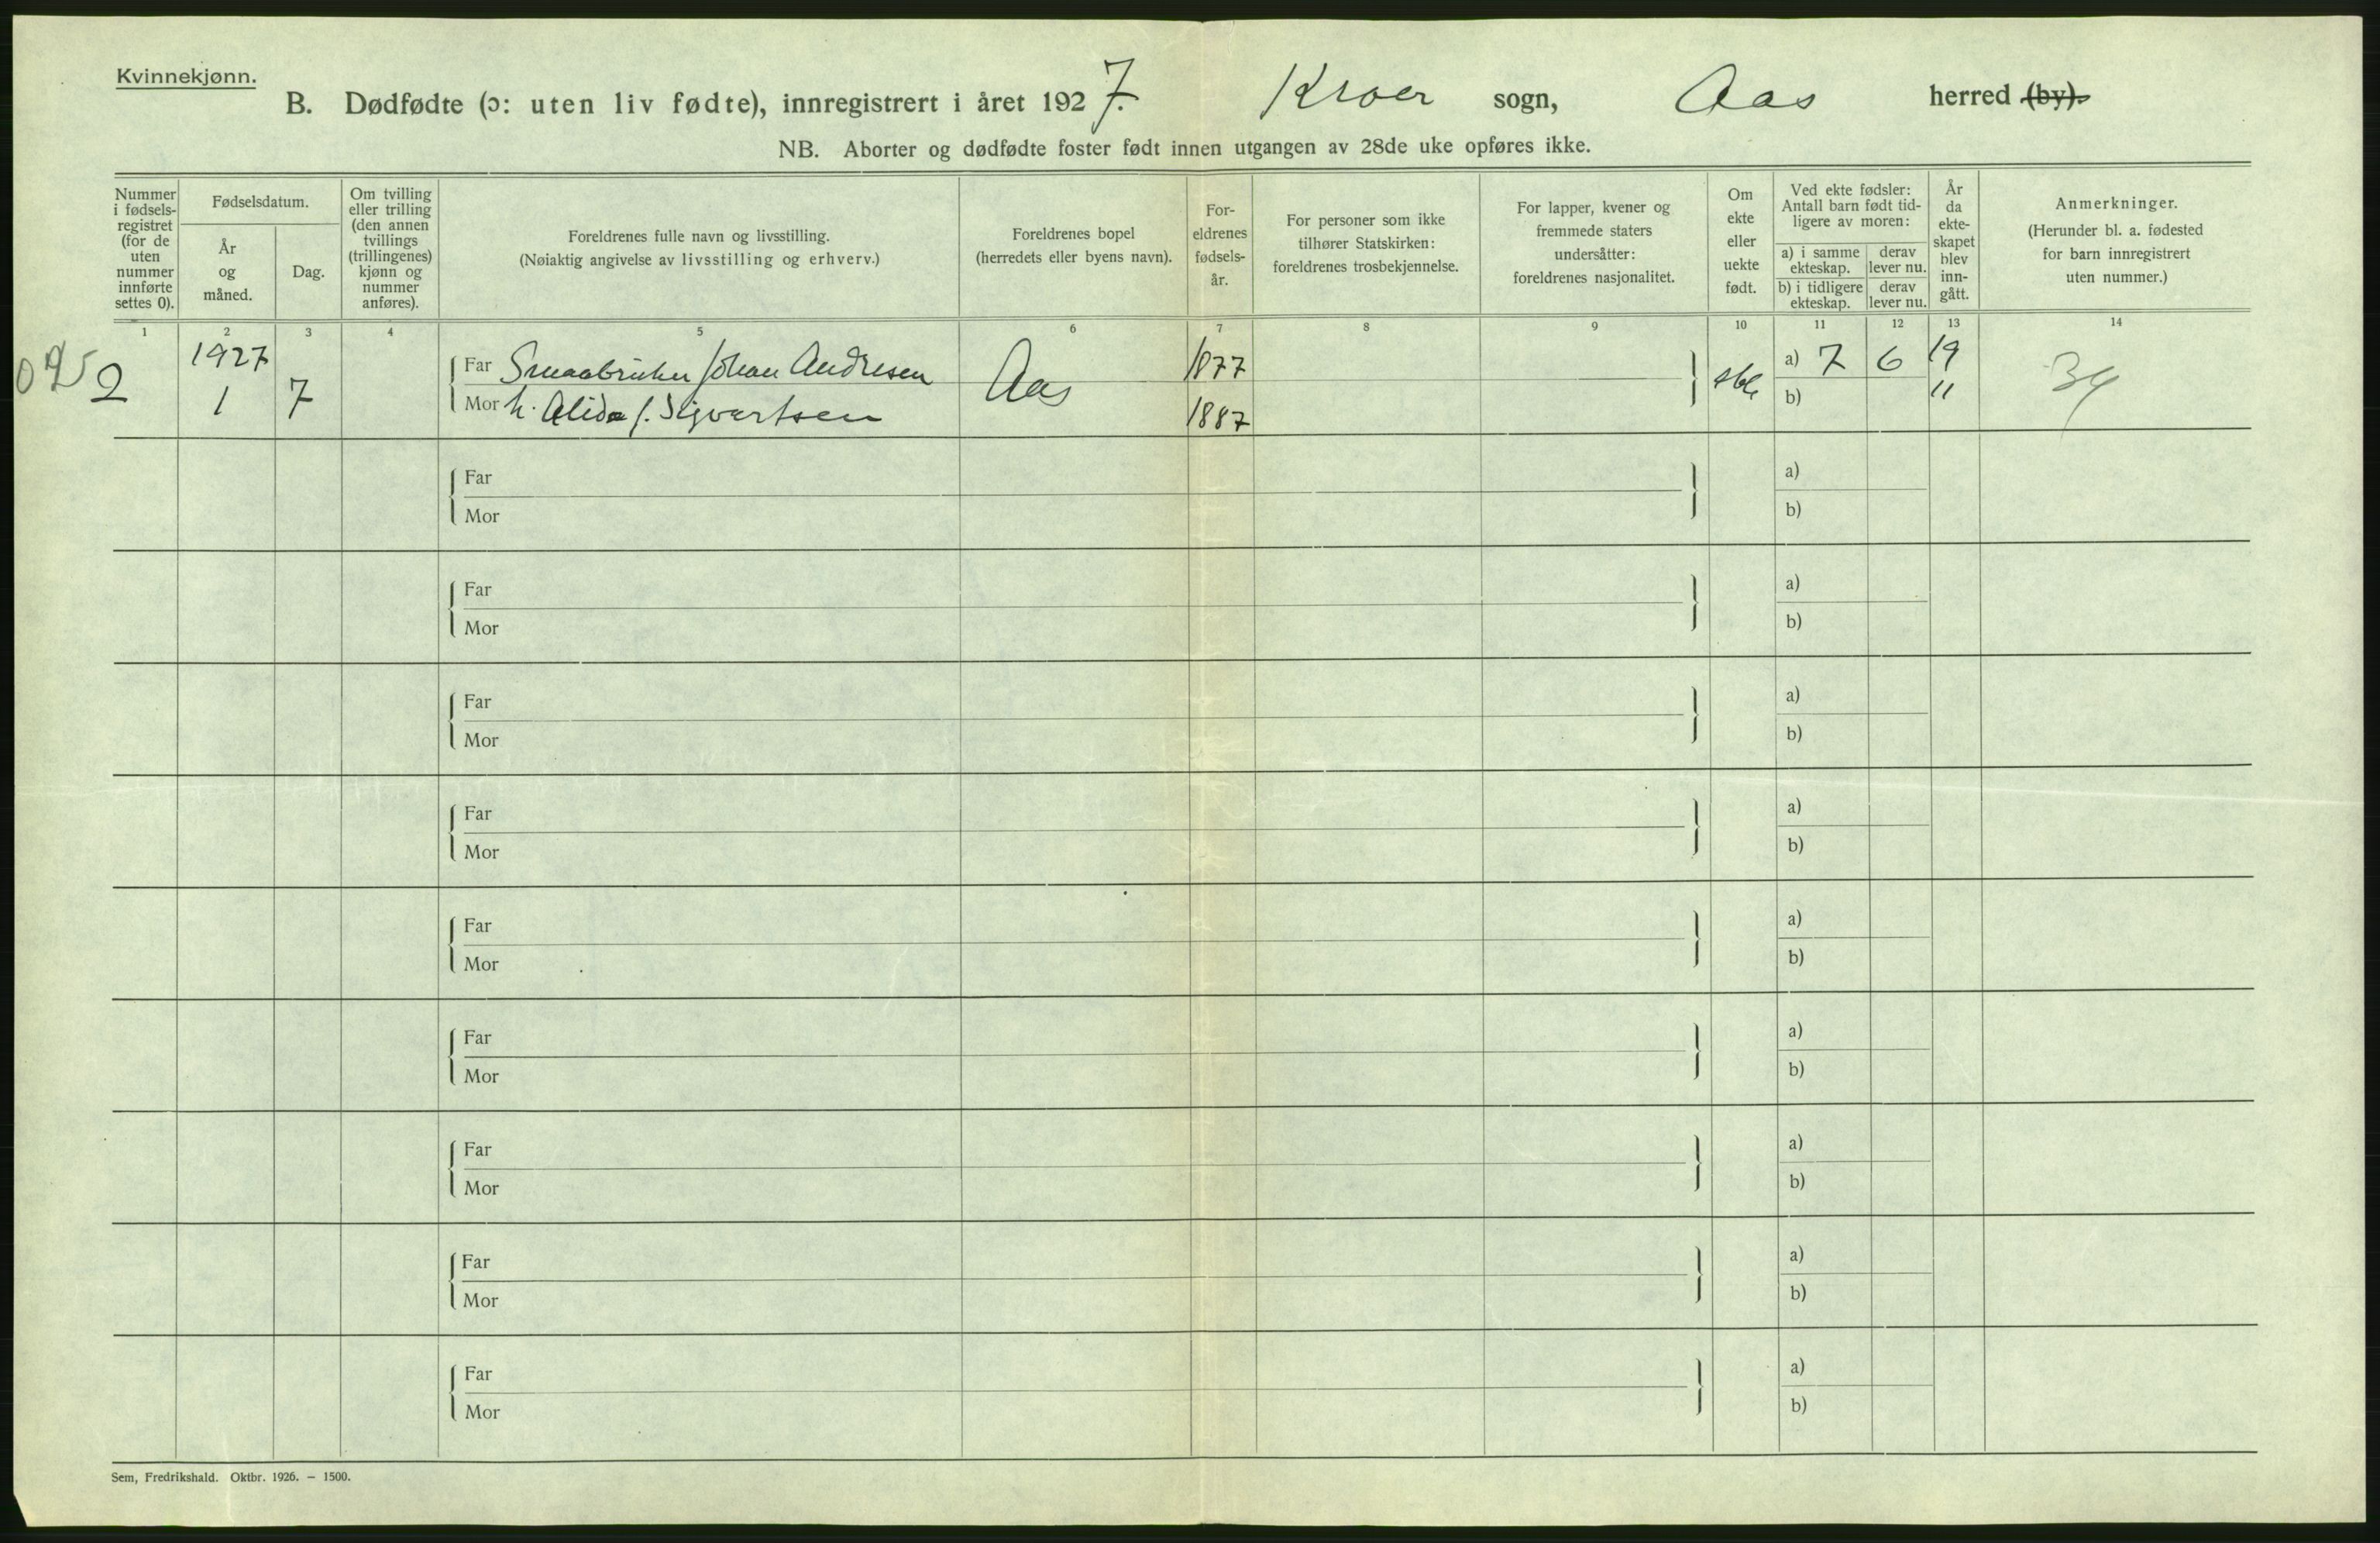 Kvinnekjønn.
B. Dødfødte (ɔ: uten liv fødte), innregistrert i året 1927. Kroer sogn, Aas herred (by).
NB. Aborter og dødfødte foster født innen utgangen av 28de uke opføres ikke.
Nummer i fødsels-registret (for de uten nummer innførte settes 0).
Fødselsdatum.
År og måned.
Dag.
Om tvilling eller trilling (den annen tvillings (trillingenes) kjønn og nummer anføres).
Foreldrenes fulle navn og livsstilling.
(Nøiaktig angivelse av livsstilling og erhverv.)
Foreldrenes bopel
(herredets eller byens navn).
For-eldrenes fødsels-år.
For personer som ikke tilhører Statskirken: foreldrenes trosbekjennelse.
For lapper, kvener og fremmede staters undersåtter: foreldrenes nasjonalitet.
Om ekte eller uekte født.
Ved ekte fødsler: Antall barn født tid-ligere av moren:
a) i samme ekteskap.
derav lever nu.
b) i tidligere ekteskap.
derav lever nu.
År da ekte-skapet blev inn-gått.
Anmerkninger.
(Herunder bl. a. fødested for barn innregistrert uten nummer.)
1 2 3 4 5 6 7 8 9 10 11 12 13 14
2 1927 1 7
Far Smaabruker Johan Andresen Aas 1877
Mor h. Alida f. Sigvartsen 1887
a) 7 6 19
b) 11
Far a)
Mor b)
Far a)
Mor b)
Far a)
Mor b)
Far a)
Mor b)
Far a)
Mor b)
Far a)
Mor b)
Far a)
Mor b)
Far a)
Mor b)
Far a)
Mor b)
Sem, Fredrikshald. Oktbr. 1926. — 1500.